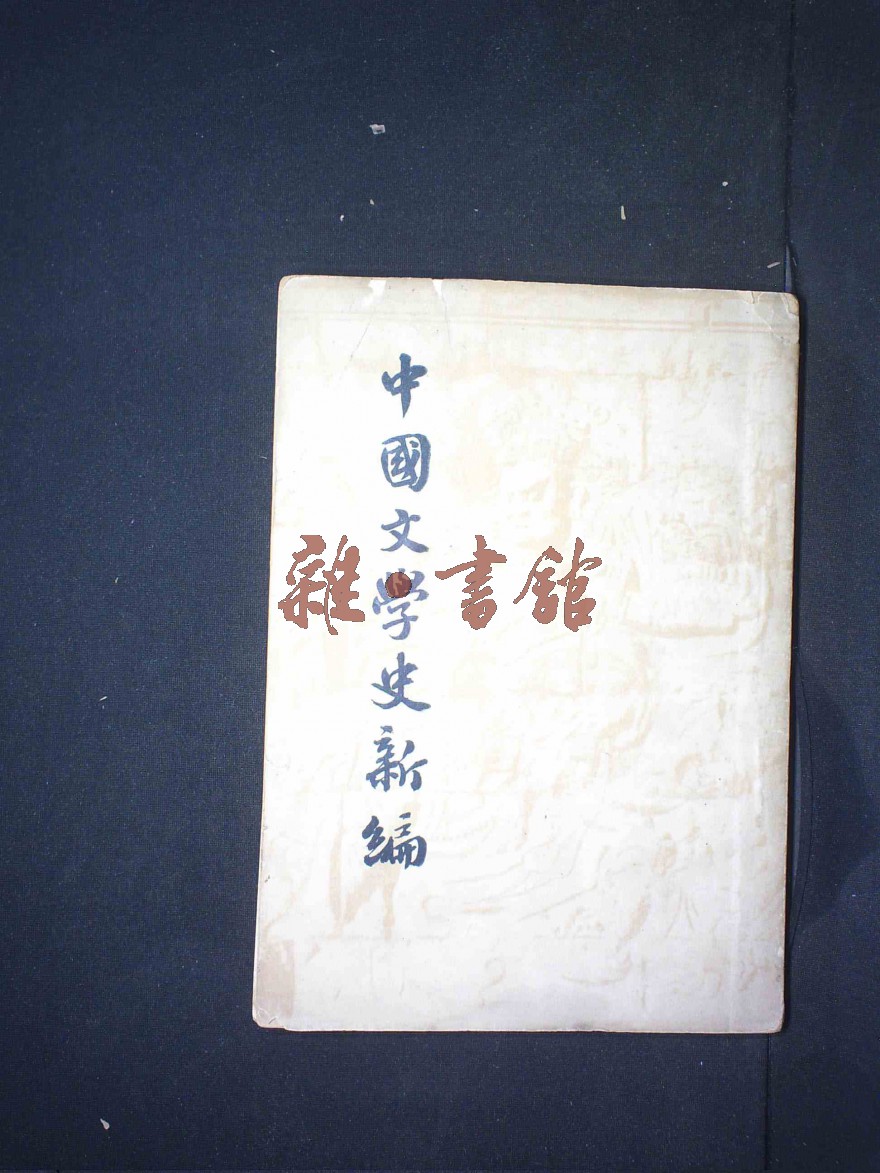 中國文学史新編
雜·書館